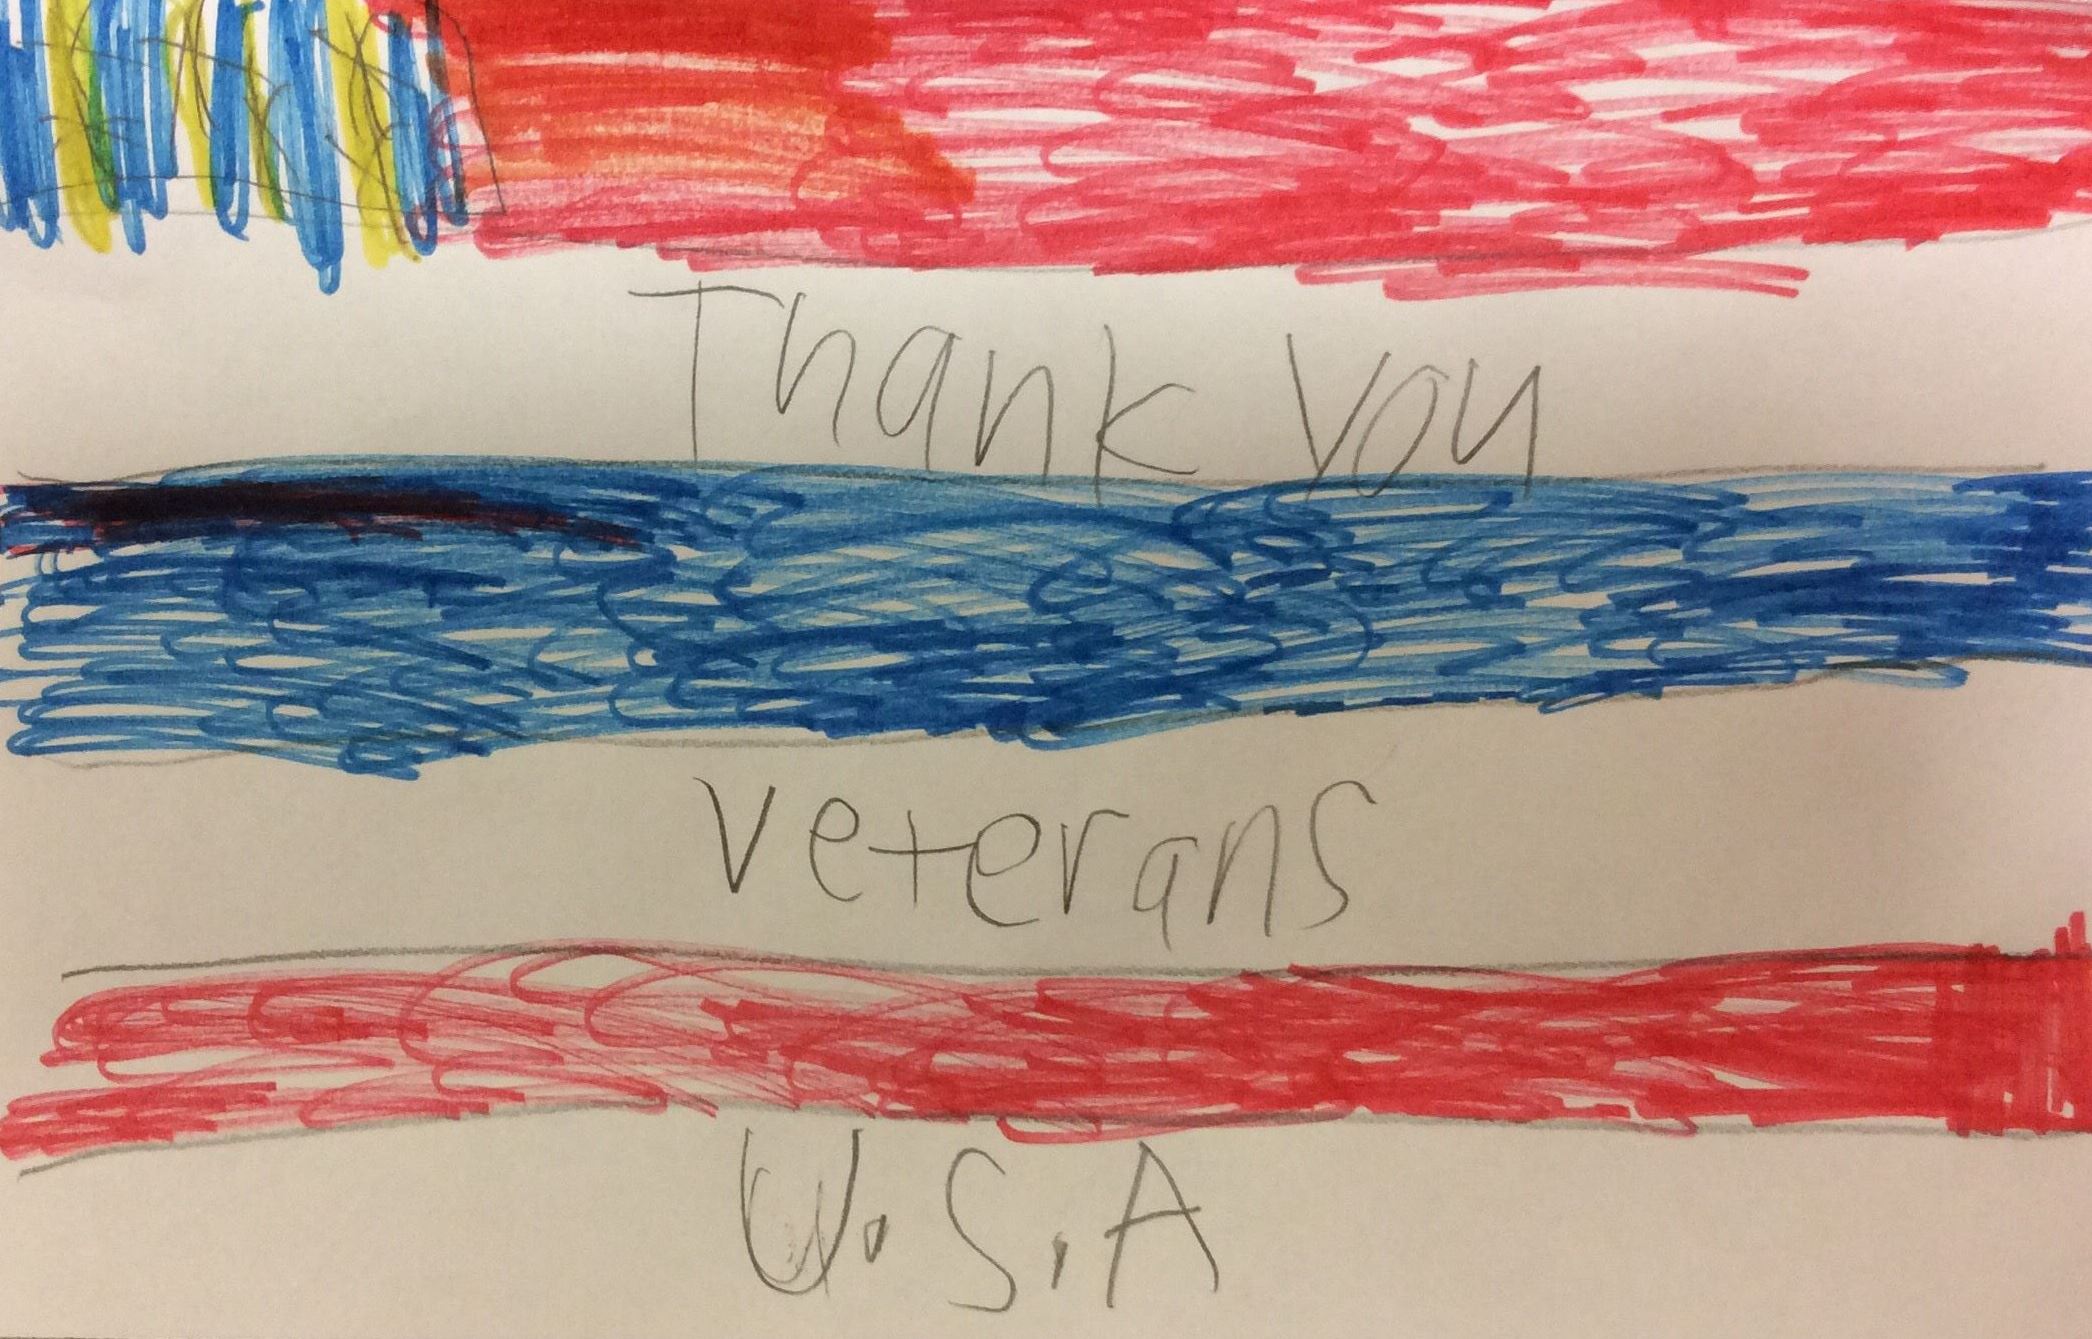 Thank you
veterans
U.S.A